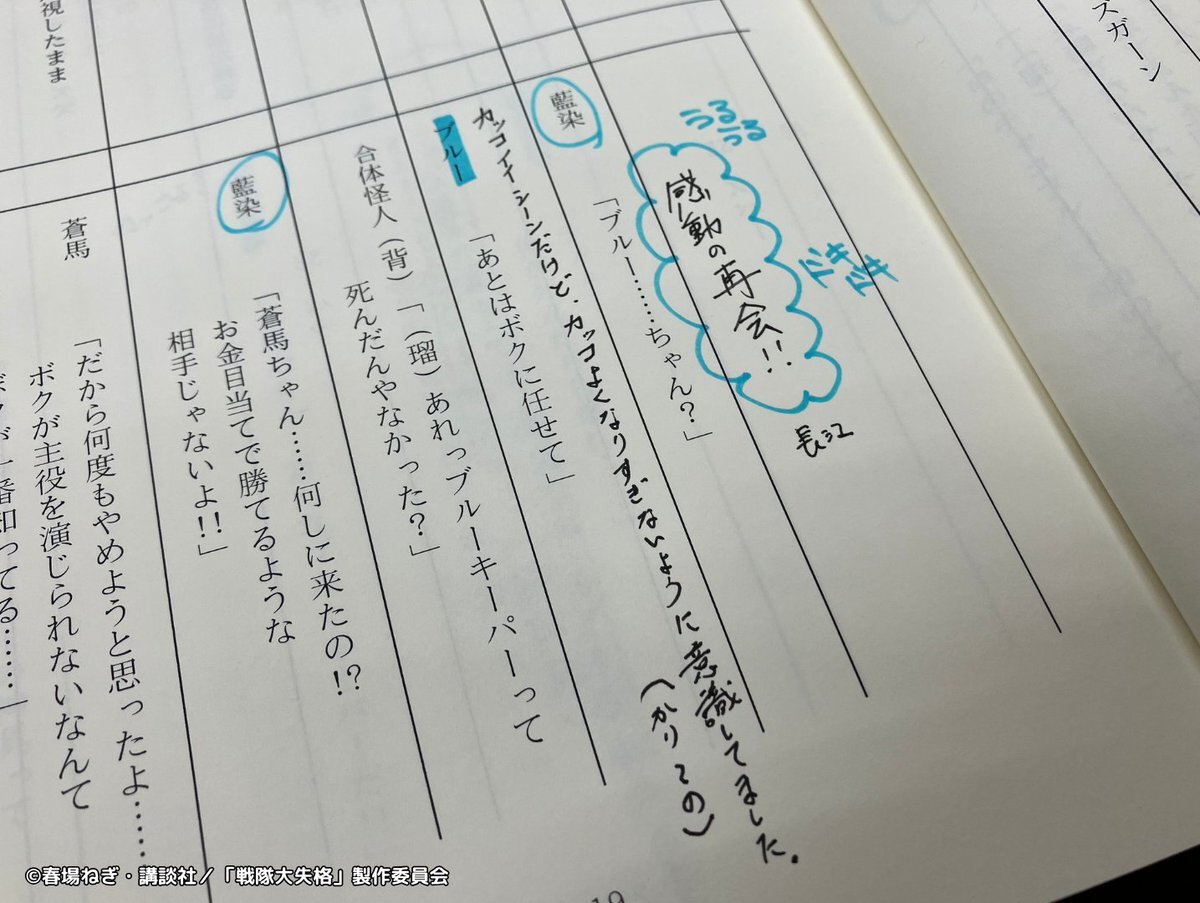 ズガーン
うる
うる
感動の再会!!
ドキ
ドキ
長江
藍染
「ブルー……ちゃん?」
カッコイイシーンだけど、カッコよくなりすぎないように意識してました。
(かりこの)
ブルー
「あとはボクに任せて」
合体怪人(背)
「(瑠)あれっブルーキーパーって
死んだんやなかった?」
藍染
「蒼馬ちゃん……何しに来たの!?
お金目当てで勝てるような
相手じゃないよ!!」
蒼馬
「だから何度もやめようと思ったよ……
ボクが主役を演じられないなんて
ボクが一番知ってる……」
視したまま
19
©春場ねぎ・講談社/「戦隊大失格」製作委員会